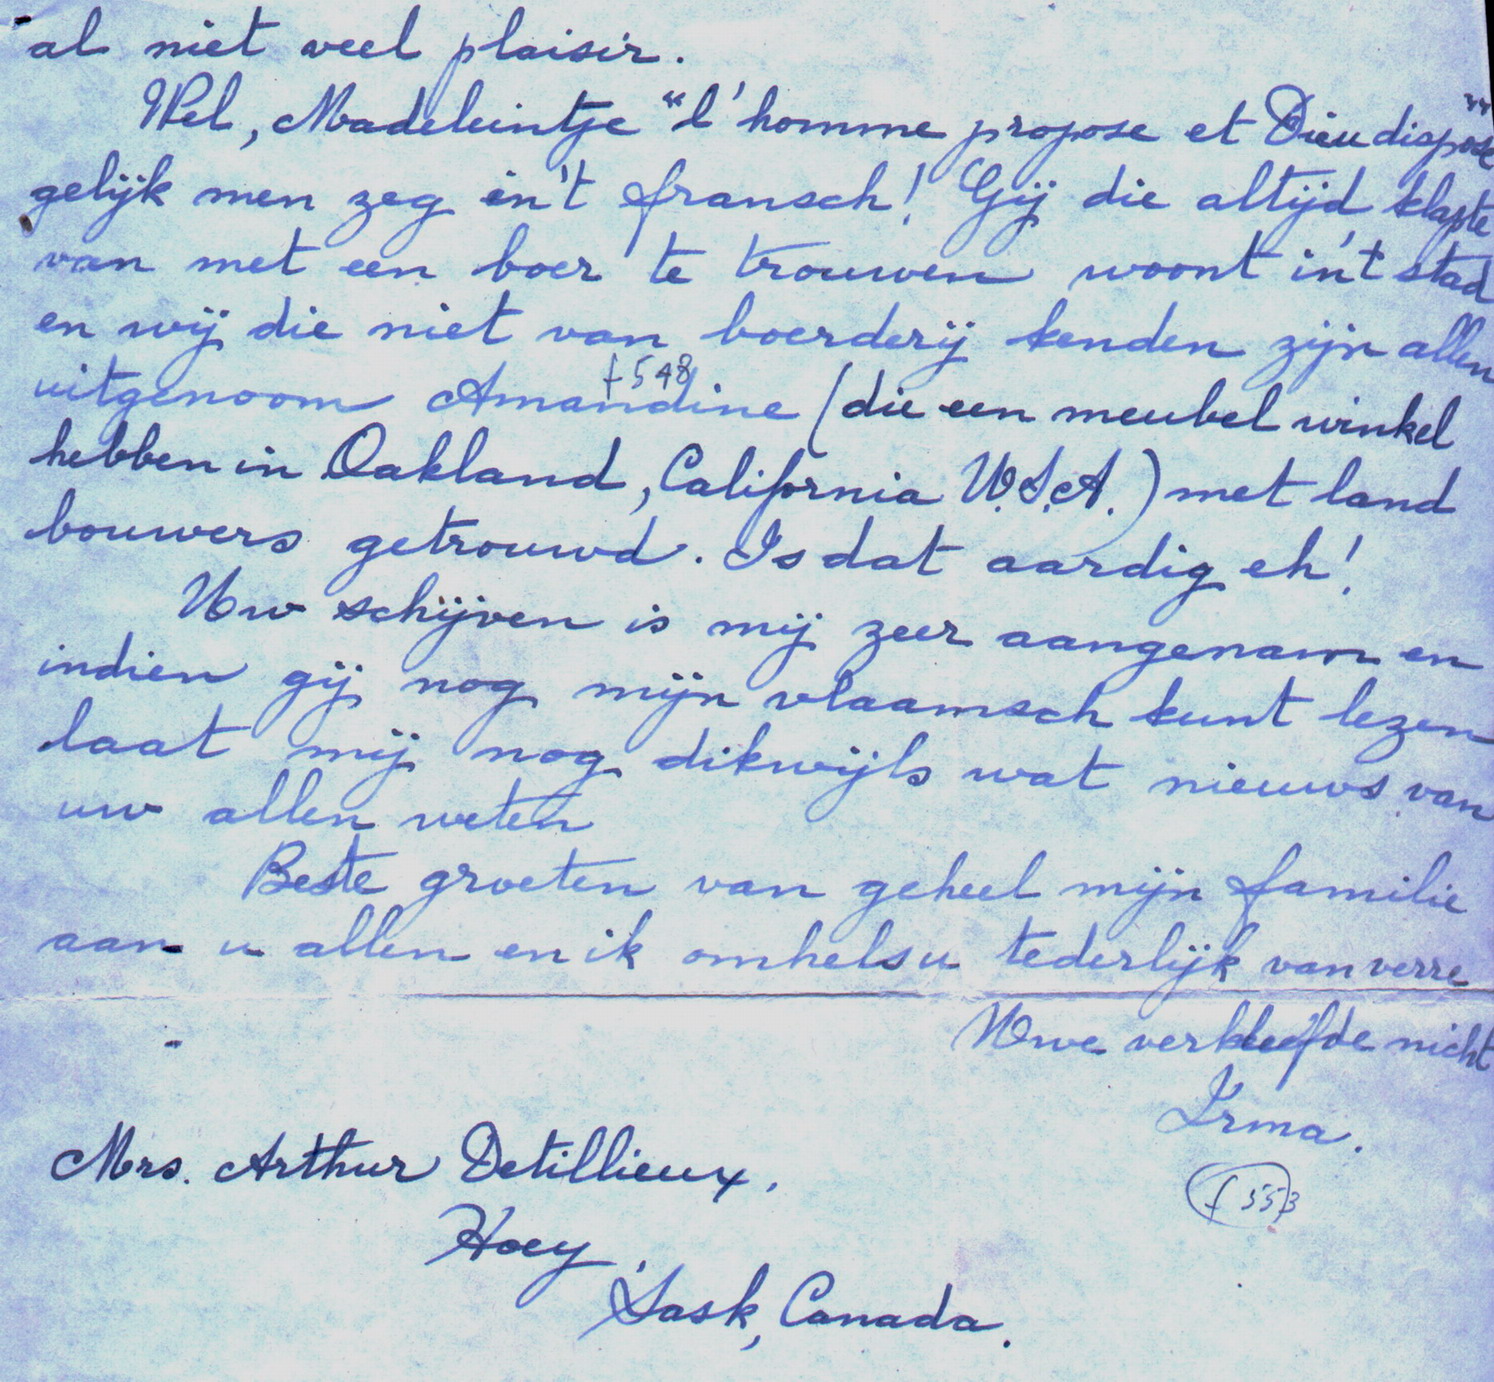 al niet veel plaisir.
Wel, Madeleintje "l'homme propose et Dieu dispose"
gelijk men zeg in't fransch! Gij die altijd klapte
van met een boer te trouwen woont in't stad
en wij die niet van boerderij kenden zijn allen
f 548
uitgenoom Amandine (die een meubel winkel
hebben in Oakland, California U.S.A.) met land
bouwers getrouwd. Is dat aardig eh!
Uw schijven is mij zeer aangenam en
indien gij nog mijn vlaamsch kunt lezen
laat mij nog dikwijls wat nieuws van
uw allen weten
Beste groeten van geheel mijn familie
aan u allen en ik omhels u tederlijk van verre
Uwe verkleefde nicht
Irma.
f 553
Mrs. Arthur Detillieux,
Hoey,
Sask, Canada.